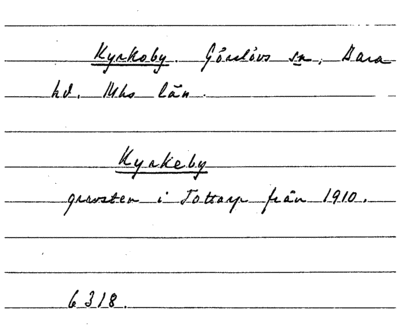 Kyrkoby. Görslövs sn, Bara
hd. Mhs län.
Kyrkeby
gravsten i Tottarp från 1910.
6318.